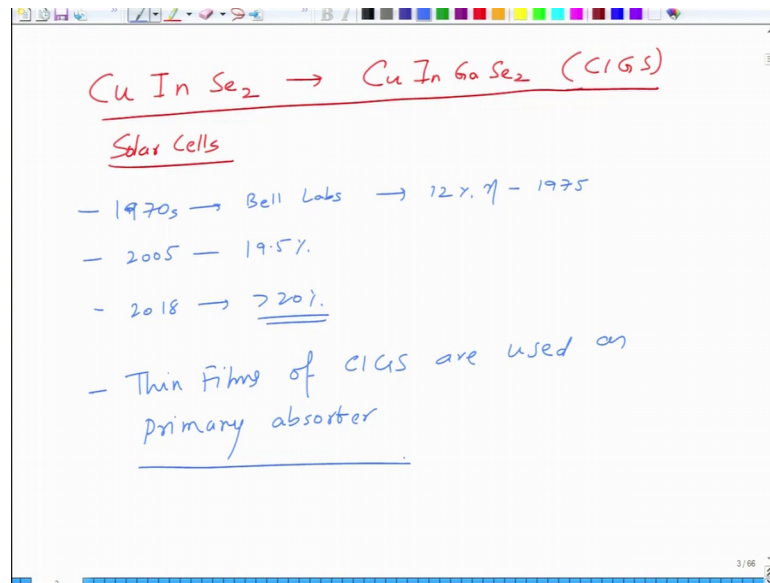 Cu In Se2 → Cu In Ga Se2 (CIGS)
Solar Cells
- 1970s → Bell Labs → 12%. η - 1975
- 2005 - 19.5%.
- 2018 → >20%.
- Thin Films of CIGS are used as
primary absorber
3 / 66